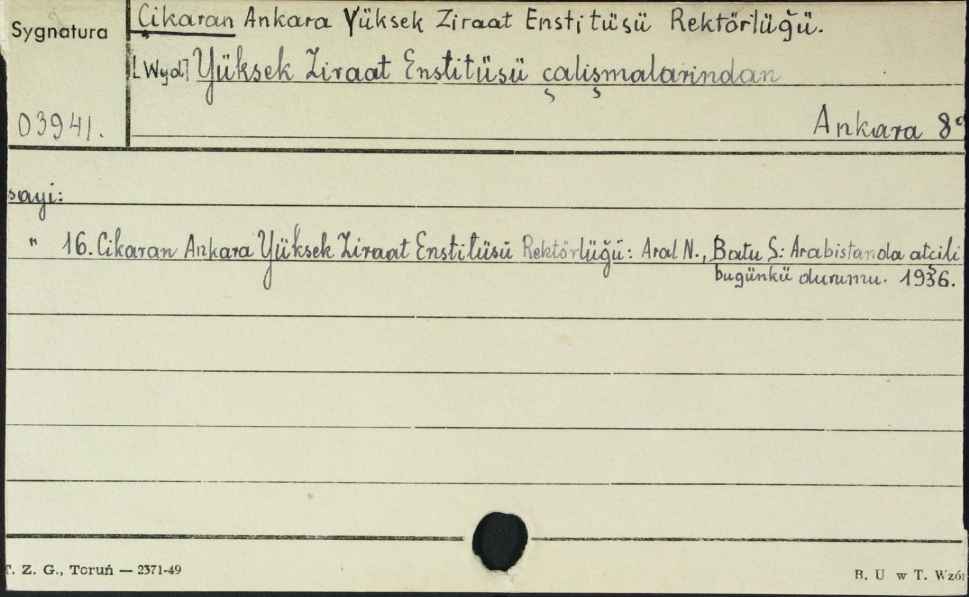 Sygnatura
Çikaran Ankara Yüksek Ziraat Enstitüsü Rektörlüğü.
[Wyd] Yüksek Ziraat Enstitüsü çalişmalarindan
03941.
Ankara 8°
sayi:
" 16. Cikaran Ankara Yüksek Ziraat Enstitüsü Rektörlüğü: Aral N., Batu S: Arabistanda atçili
bugünkü durumu. 1936.
T. Z. G., Toruń — 2371-49
B. U w T. Wzór